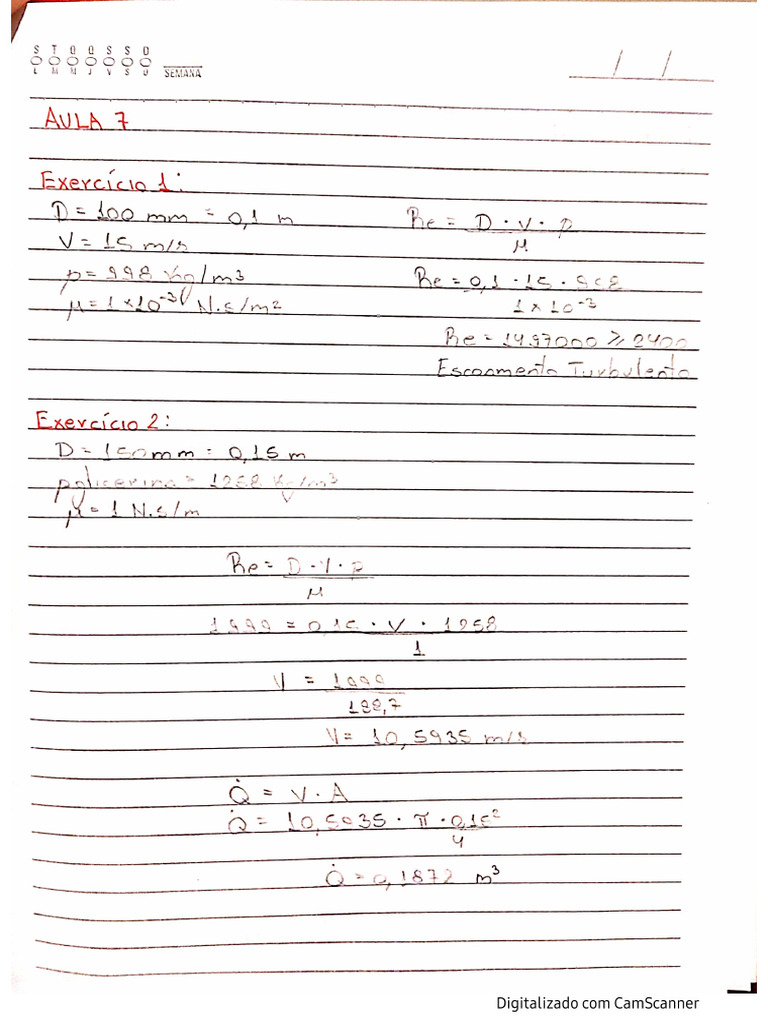 S T Q Q S S D
L M M J V S D SEMANA
/ /
AULA 7
Exercício 1:
D = 100 mm = 0,1 m
V = 15 m/s
ρ = 998 Kg/m³
μ = 1×10⁻³ N.s/m²
Re = D · V · ρ
μ
Re = 0,1 · 15 · 998
1 × 10⁻³
Re = 1497000 ⩾ 2400
Escoamento Turbulento
Exercício 2:
D = 150mm = 0,15 m
ρglicerina = 1258 Kg/m³
μ = 1 N.s/m
Re = D · V · ρ
μ
1999 = 0,15 · V · 1258
1
V = 1999
188,7
V = 10,5935 m/s
Q̇ = V · A
Q̇ = 10,5935 · π · 0,15²
4
Q̇ = 0,1872 m³
Digitalizado com CamScanner